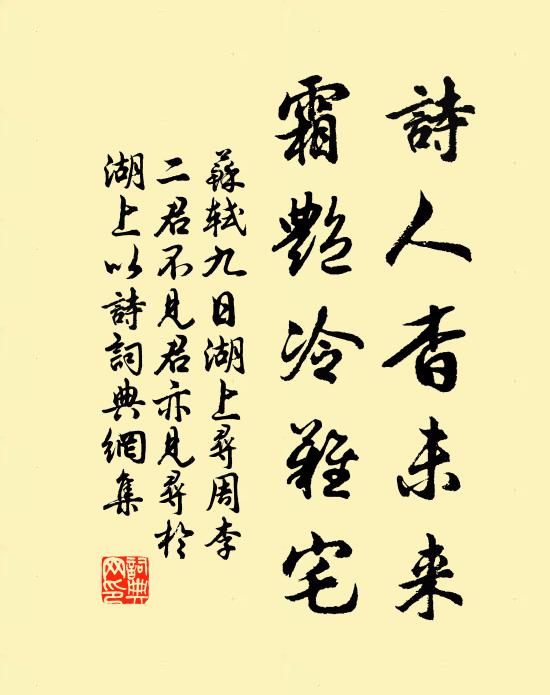 詩人杳未来
霜艷冷難宅
蘇軾九日湖上尋周李
二君不見君亦見尋於
湖上以詩詞典網集
詞典
网印